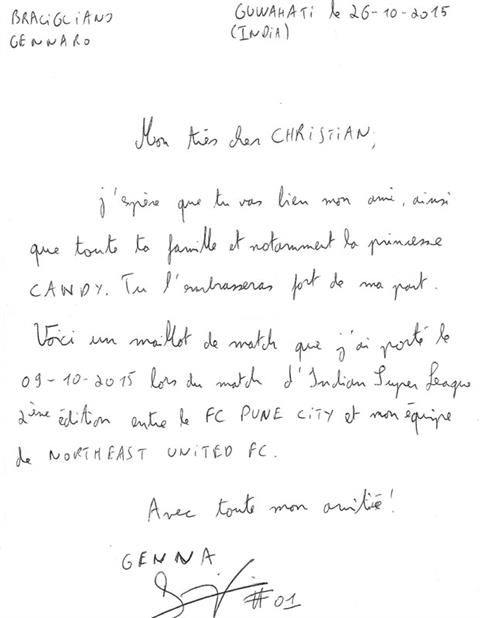 BRACIGLIANO
GENNARO
GUWAHATI le 26-10-2015
(INDIA)
Mon très cher CHRISTIAN,
j'espère que tu vas bien mon ami, ainsi
que toute ta famille et notamment la princesse
CANDY. Tu l'embrasseras fort de ma part.
Voici un maillot de match que j'ai porté le
09-10-2015 lors du match d'Indian Super League
2ème édition entre le FC PUNE CITY et mon équipe
de NORTHEAST UNITED FC.
Avec toute mon amitié!
GENNA
#01